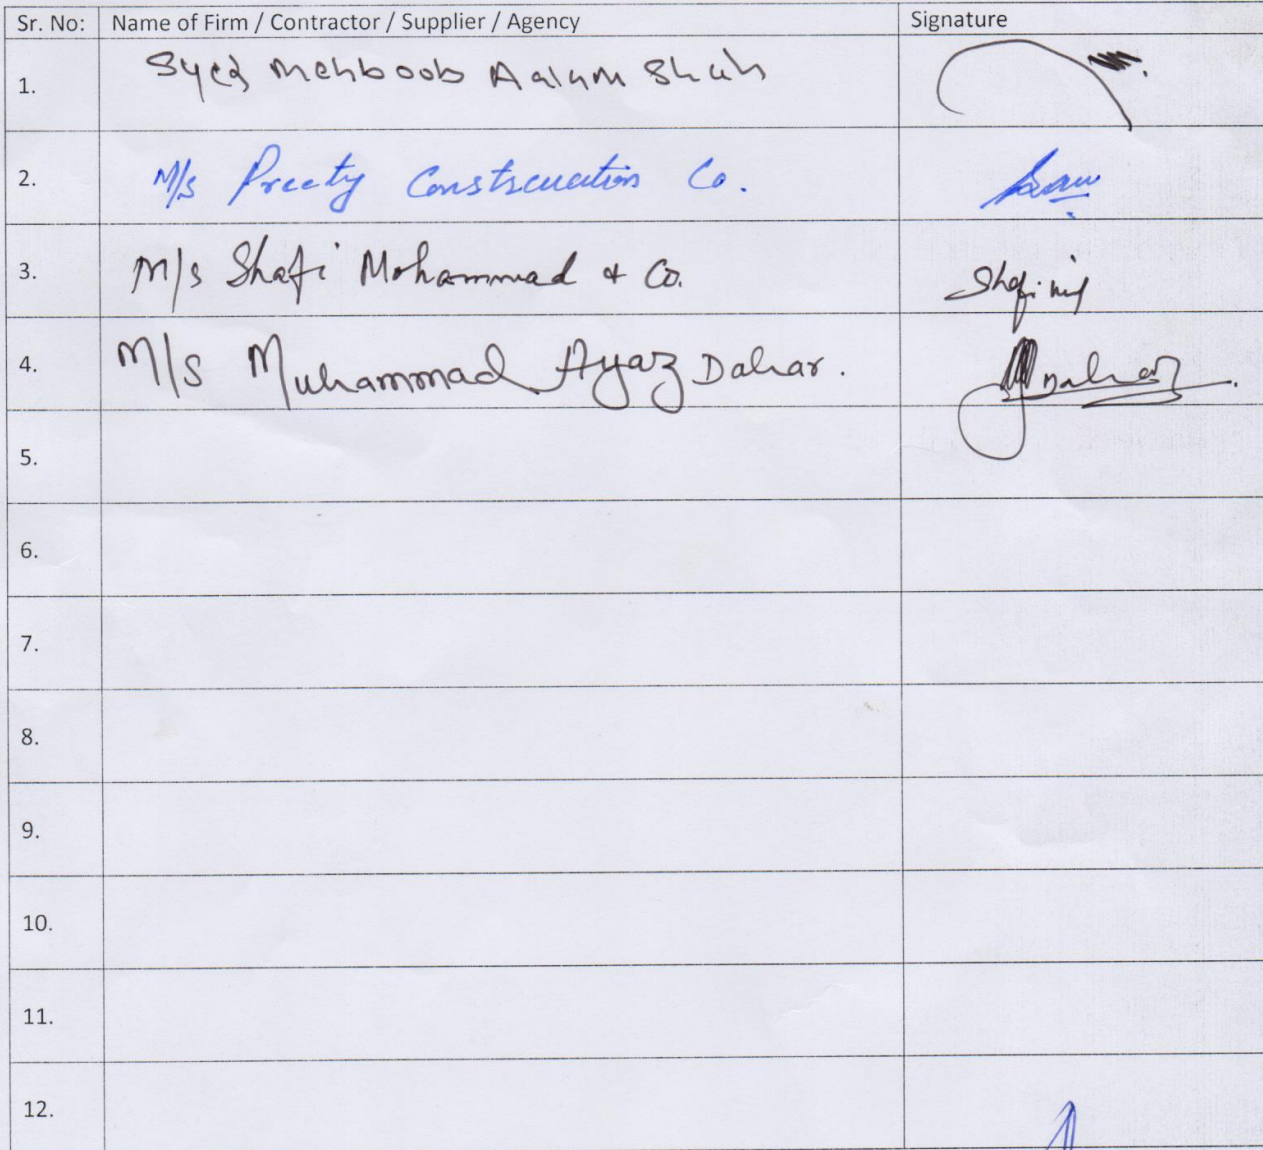 Sr. No: Name of Firm / Contractor / Supplier / Agency Signature
1. Syed Mehboob Aalam Shah
2. M/s Preety Construcation Co.
3. M/s Shafi Mohammad & Co.
4. M/s Muhammad Ayaz Dahar.
5.
6.
7.
8.
9.
10.
11.
12.